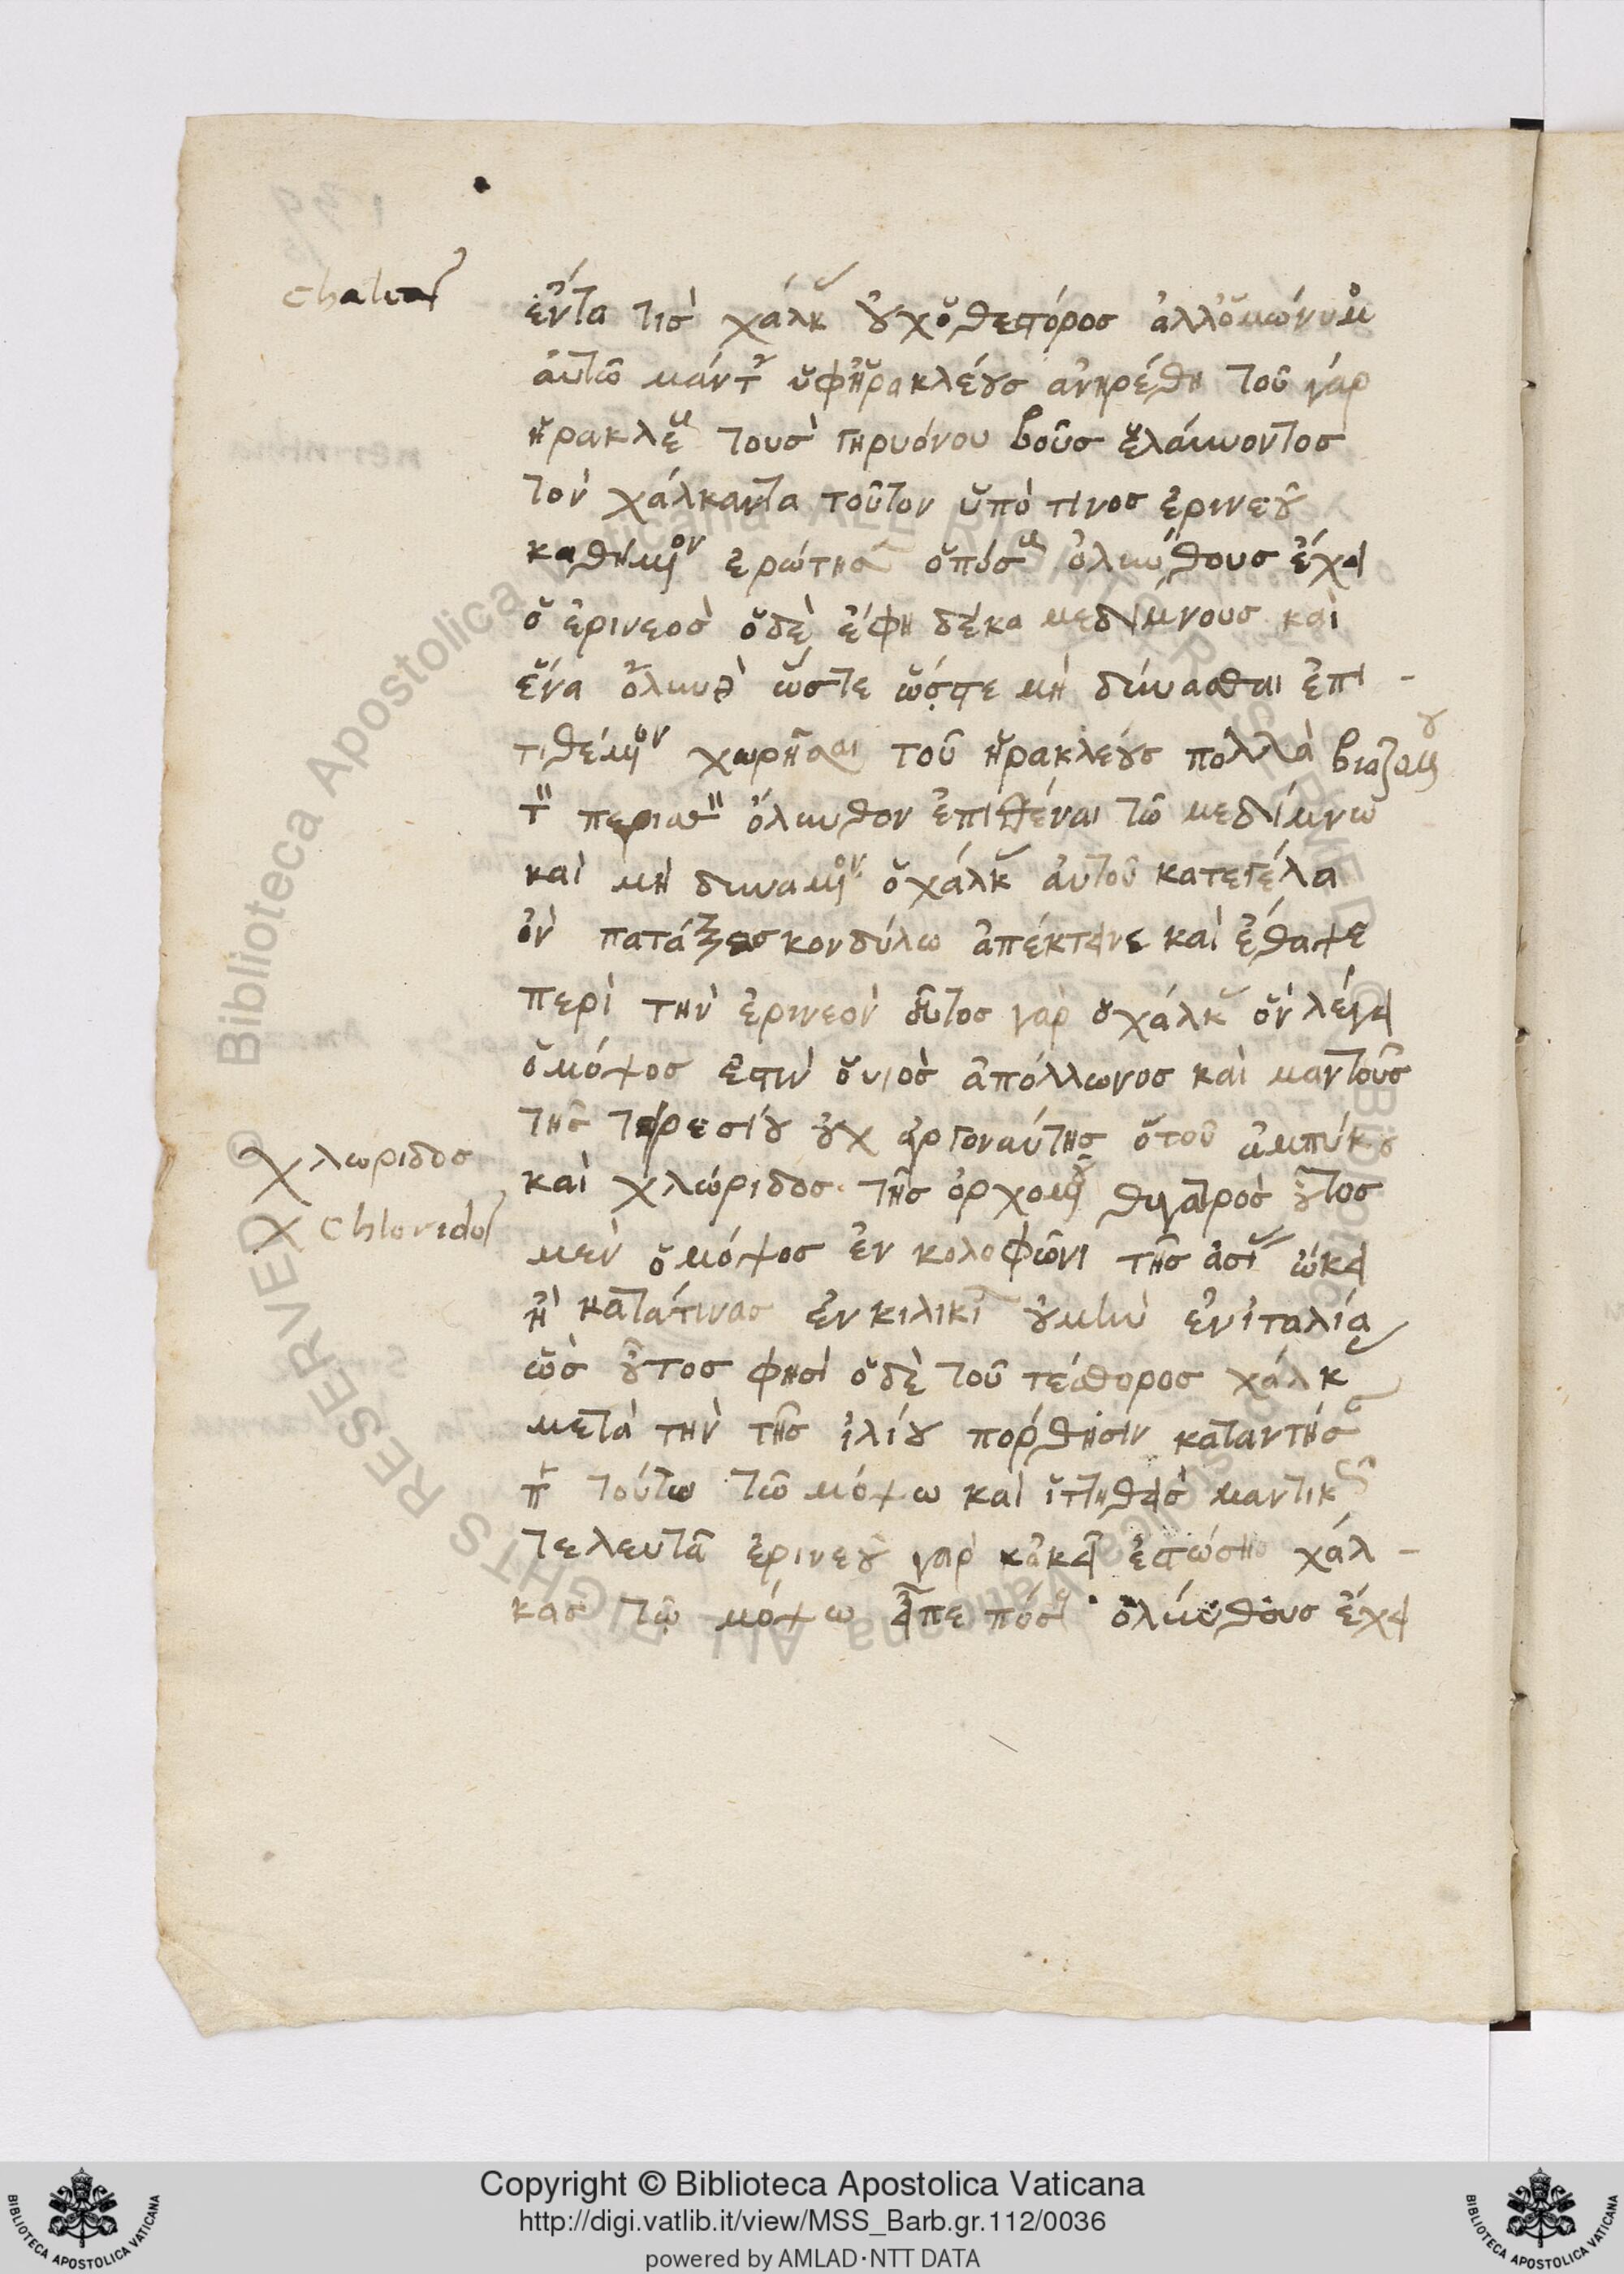 Chalcas
ἐνταῦθα τισ χάλκας οὐχ ὁ θεστόροσ ἀλλ' ὁμώνυμος
αὐτῶ μάντις ὑφ' ἡρακλέους ἀνηρέθη τοῦ γάρ
ἡρακλέους τουσ γηρυόνου βοῦσ ἐλάυνοντοσ
τὸν χάλκαντα τοῦτον ὑπό τινοσ ἐρινεοῦ
καθήμενον ἐρώτησε ὁπόσους ὀλύνθουσ ἔχει
ὁ ἐρινεοσ ὁδὲ ἔφη δέκα μεδίμνουσ καὶ
ἕνα ὄλυνθον ὥστε ὥστε μὴ δύνασθαι ἐπι -
τιθέμενον χωρῆσαι τοῦ ἡρακλέουσ πολλὰ βιαζομένου
τὸν περισσὸν ὄλυνθον ἐπιθεῖναι τῶ μεδίμνω
καὶ μὴ δυναμένου ὁ χάλκας αὐτοῦ κατεγέλα
ὃν πατάξασ κονδύλω ἀπέκτεινε καὶ ἔθαψε
περὶ τὴν ἐρινεόν οὗτοσ γὰρ ὁ χάλκας ὃν λέγει
ὁ μόψοσ ἐστιν ὁ υἱὸσ ἀπόλλωνοσ καὶ μαντοῦσ
τῆσ τειρεσίου οὐχ ἀργοναύτησ ὁ τοῦ ἀμπύκοσ
Χλωριδοσ
καὶ χλώριδοσ τῆσ ὀρχομενοῦ θυγατρὸσ οὗτοσ
Chloridos
μεν ὁ μόψοσ ἐν κολοφῶνι τῆσ ἀσίας ὤκει
ἢ κατά τινασ ἐν κιλικία οὐμὴν ἐν ἰταλία
ὡσ οὗτοσ φησὶ ὁδὲ τοῦ τέσθοροσ χάλκας
μετὰ τὴν τῆσ ἰλίου πόρθησιν καταντήσας
πρὸς τούτω τῶ μόψω καὶ ἡττηθεὶσ μαντικῆς
τελευτᾶ ἐρινεοῦ γὰρ κἀκεῖ ἑστώσησ χάλ -
κασ τῶ μόψω εἶπε πόσους ὀλύνθουσ ἔχει
Copyright © Biblioteca Apostolica Vaticana
http://digi.vatlib.it/view/MSS_Barb.gr.112/0036
powered by AMLAD·NTT DATA
BIBLIOTECA APOSTOLICA VATICANA
BIBLIOTECA APOSTOLICA VATICANA